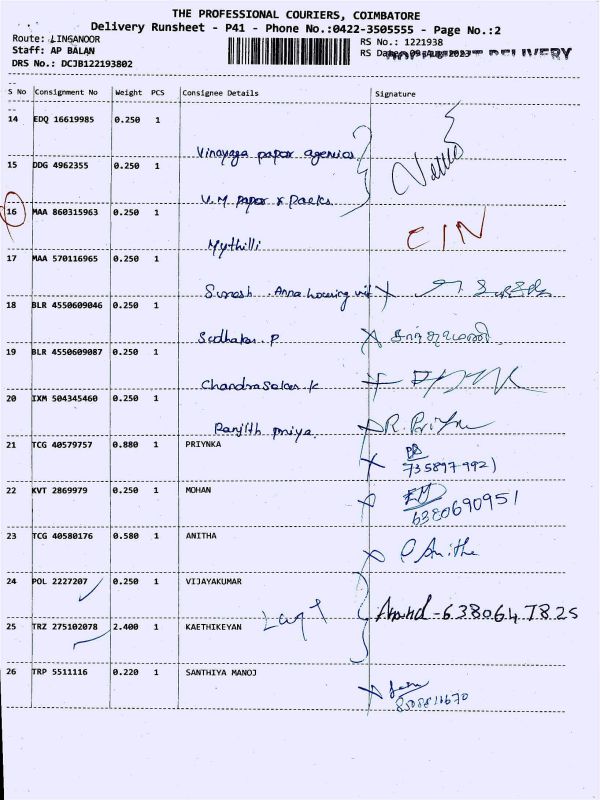 THE PROFESSIONAL COURIERS, COIMBATORE
Delivery Runsheet - P41 - Phone No.:0422-3505555 - Page No.:2
Route: LINGANOOR
RS No.: 1221938
Staff: AP BALAN
RS Date
DRS No.: DCJB122193802
S No Consignment No Weight PCS Consignee Details Signature
14 EDQ 16619985 0.250 1
Vinayaga papar agencies
15 DDG 4962355 0.250 1
V.M papar x Packs
16 MAA 860315963 0.250 1
Mythilli
C/N
17 MAA 570116965 0.250 1
Suresh . Anna housing unit
18 BLR 4550609046 0.250 1
Sudhakar. P
19 BLR 4550609087 0.250 1
Chandrasekar k
20 IXM 504345460 0.250 1
Ranjith priya.
R. Priya
21 TCG 40579757 0.880 1 PRIYNKA
7358979921
22 KVT 2869979 0.250 1 MOHAN
6380690951
23 TCG 40580176 0.580 1 ANITHA
Anitha
24 POL 2227207 0.250 1 VIJAYAKUMAR
Anand - 6380647825
25 TRZ 275102078 2.400 1 KAETHIKEYAN
26 TRP 5511116 0.220 1 SANTHIYA MANOJ